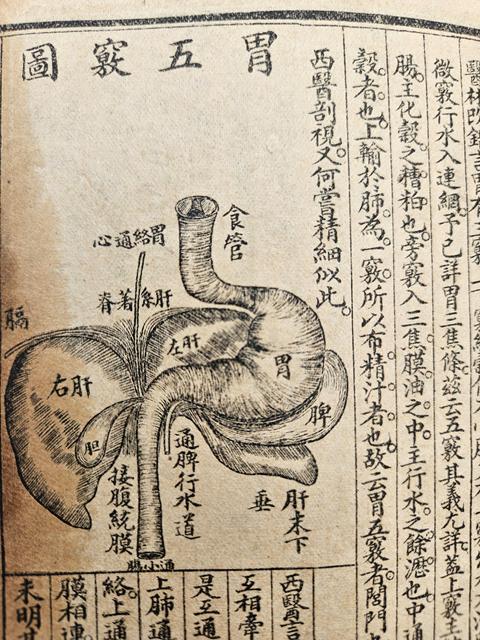 醫林改錯言胃有三竅
微竅行水入連網。予已詳胃三焦條。茲云五竅。其義尤詳。蓋上竅主
腸。主化穀之糟粕也。旁竅入三焦膜油之中。主行水之餘瀝也。中通
穀者也。上輸於肺。為一竅。所以布精汁者也。故云胃五竅者。閭門
西醫剖視。又何嘗精細似此。
胃五竅圖
食管
胃絡通心
肝系著脊
膈
左肝
右肝
胃
脾
胆
通脾行水道
肝末下垂
接腹統膜
通小腸
西醫言
互相牽
是互通
上肺通
絡上通
膜相連
未明其